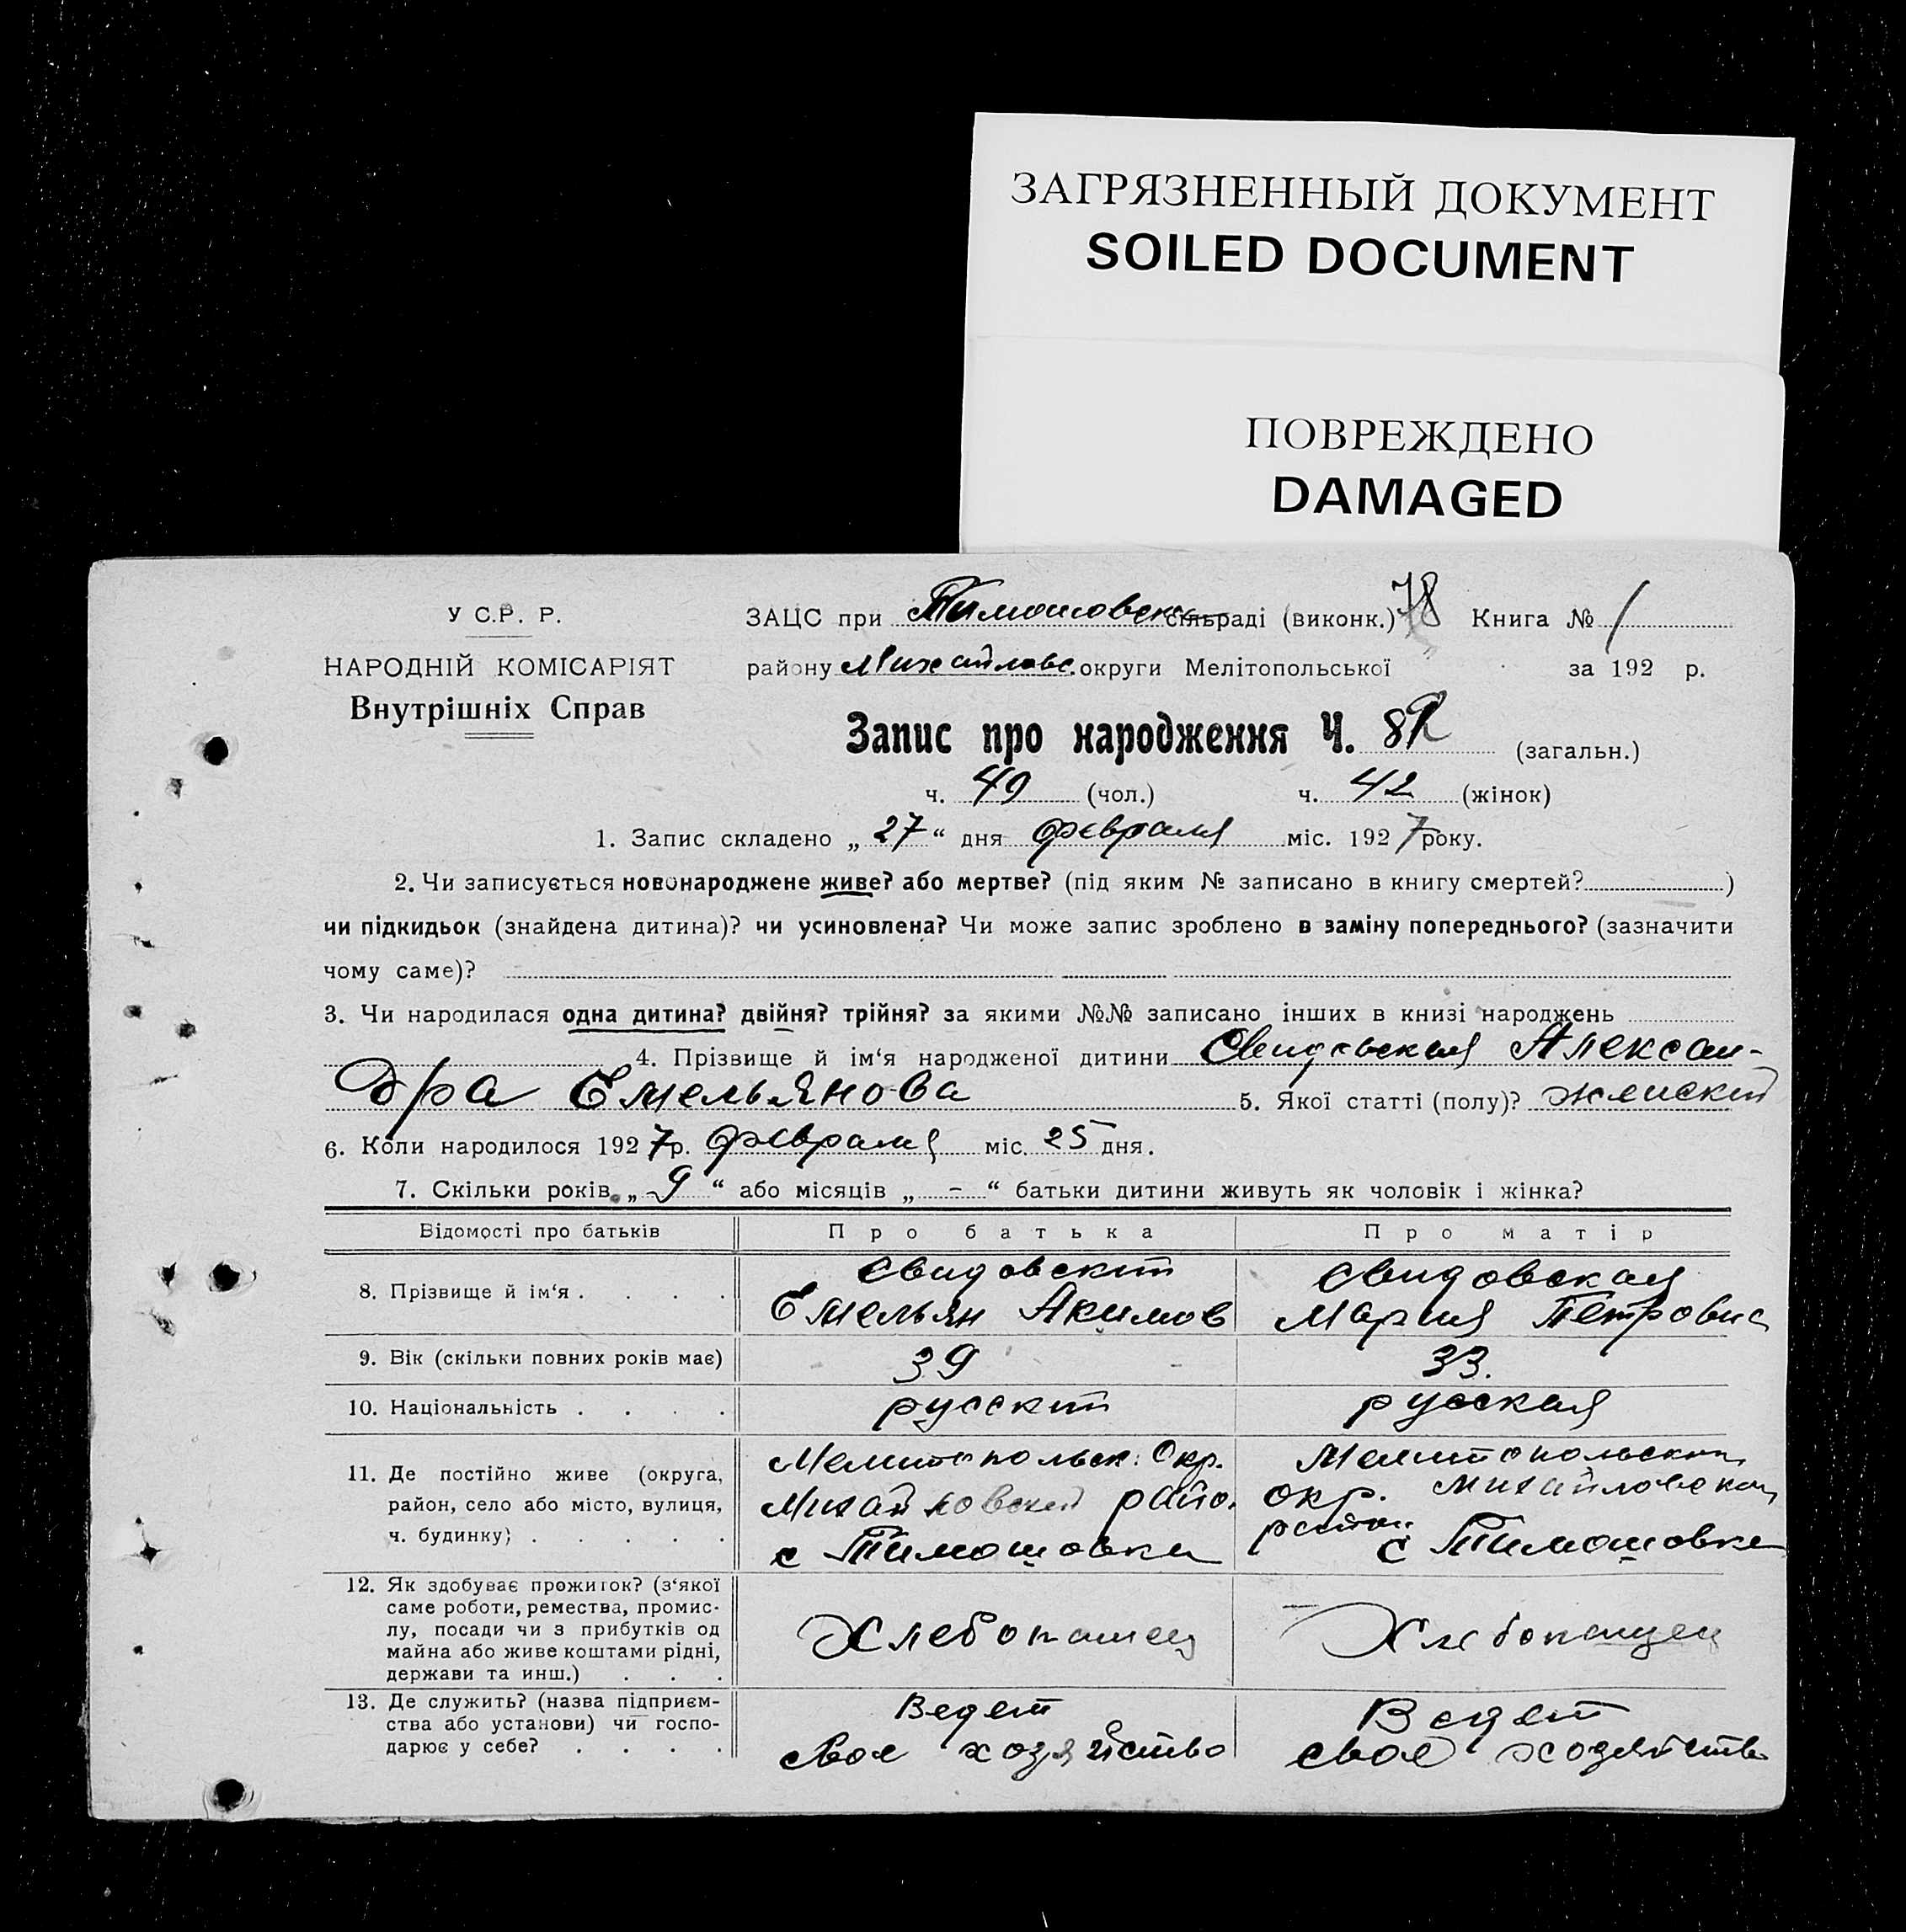 ЗАГРЯЗНЕННЫЙ ДОКУМЕНТ
SOILED DOCUMENT
ПОВРЕЖДЕНО
DAMAGED
У С.Р. Р.
НАРОДНІЙ КОМІСАРІЯТ
Внутрішніх Справ
ЗАЦС при Тимошовск сільраді (виконк.) 78 Книга № 1
району Михайловс. округи Мелітопольської за 192 р.
Запис про народження Ч. (загальн.)
ч. 49 (чол.) ч. 42 (жінок)
1. Запис складено „ 27 “ дня февраля міс. 1927 року.
2. Чи записується новонароджене живе? або мертве? (під яким № записано в книгу смертей? )
чи підкидьок (знайдена дитина)? чи усиновлена? Чи може запис зроблено в заміну попереднього? (зазначити
чому саме)?
3. Чи народилася одна дитина? двійня? трійня? за якими №№ записано інших в книзі народжень
4. Прізвище й ім‘я народженої дитини Свидовская Алексан-
дра Емельянова 5. Якої статті (полу)? женский
6. Коли народилося 1927 р. февраля міс. 25 дня.
7. Скільки років „ 9 “ або місяців „ - “ батьки дитини живуть як чоловік і жінка?
Відомості про батьків Про батька Про матір
8. Прізвище й ім‘я . . . . Свидовский Емельян Акимов Свидовская Мария Петровна
9. Вік (скільки повних років має) 39 33.
10. Національність . . . . русский русская
11. Де постійно живе (округа,
район, село або місто, вулиця,
ч. будинку) . . . . .
Мелитопольск. Окр.
Михайловский райо.
с Тимошовки
Мелитопольский
окр. Михайловской
район
с Тимошовке
12. Як здобуває прожиток? (з‘якої
саме роботи, ремества, промис-
лу, посади чи з прибутків од
майна або живе коштами рідні,
держави та инш.) . . .
Хлебопашец
Хлебопашец
13. Де служить? (назва підприєм-
ства або установи) чи госпо-
дарює у себе? . . . .
Ведет
свое хозяйство
Ведет
свое хозяйство